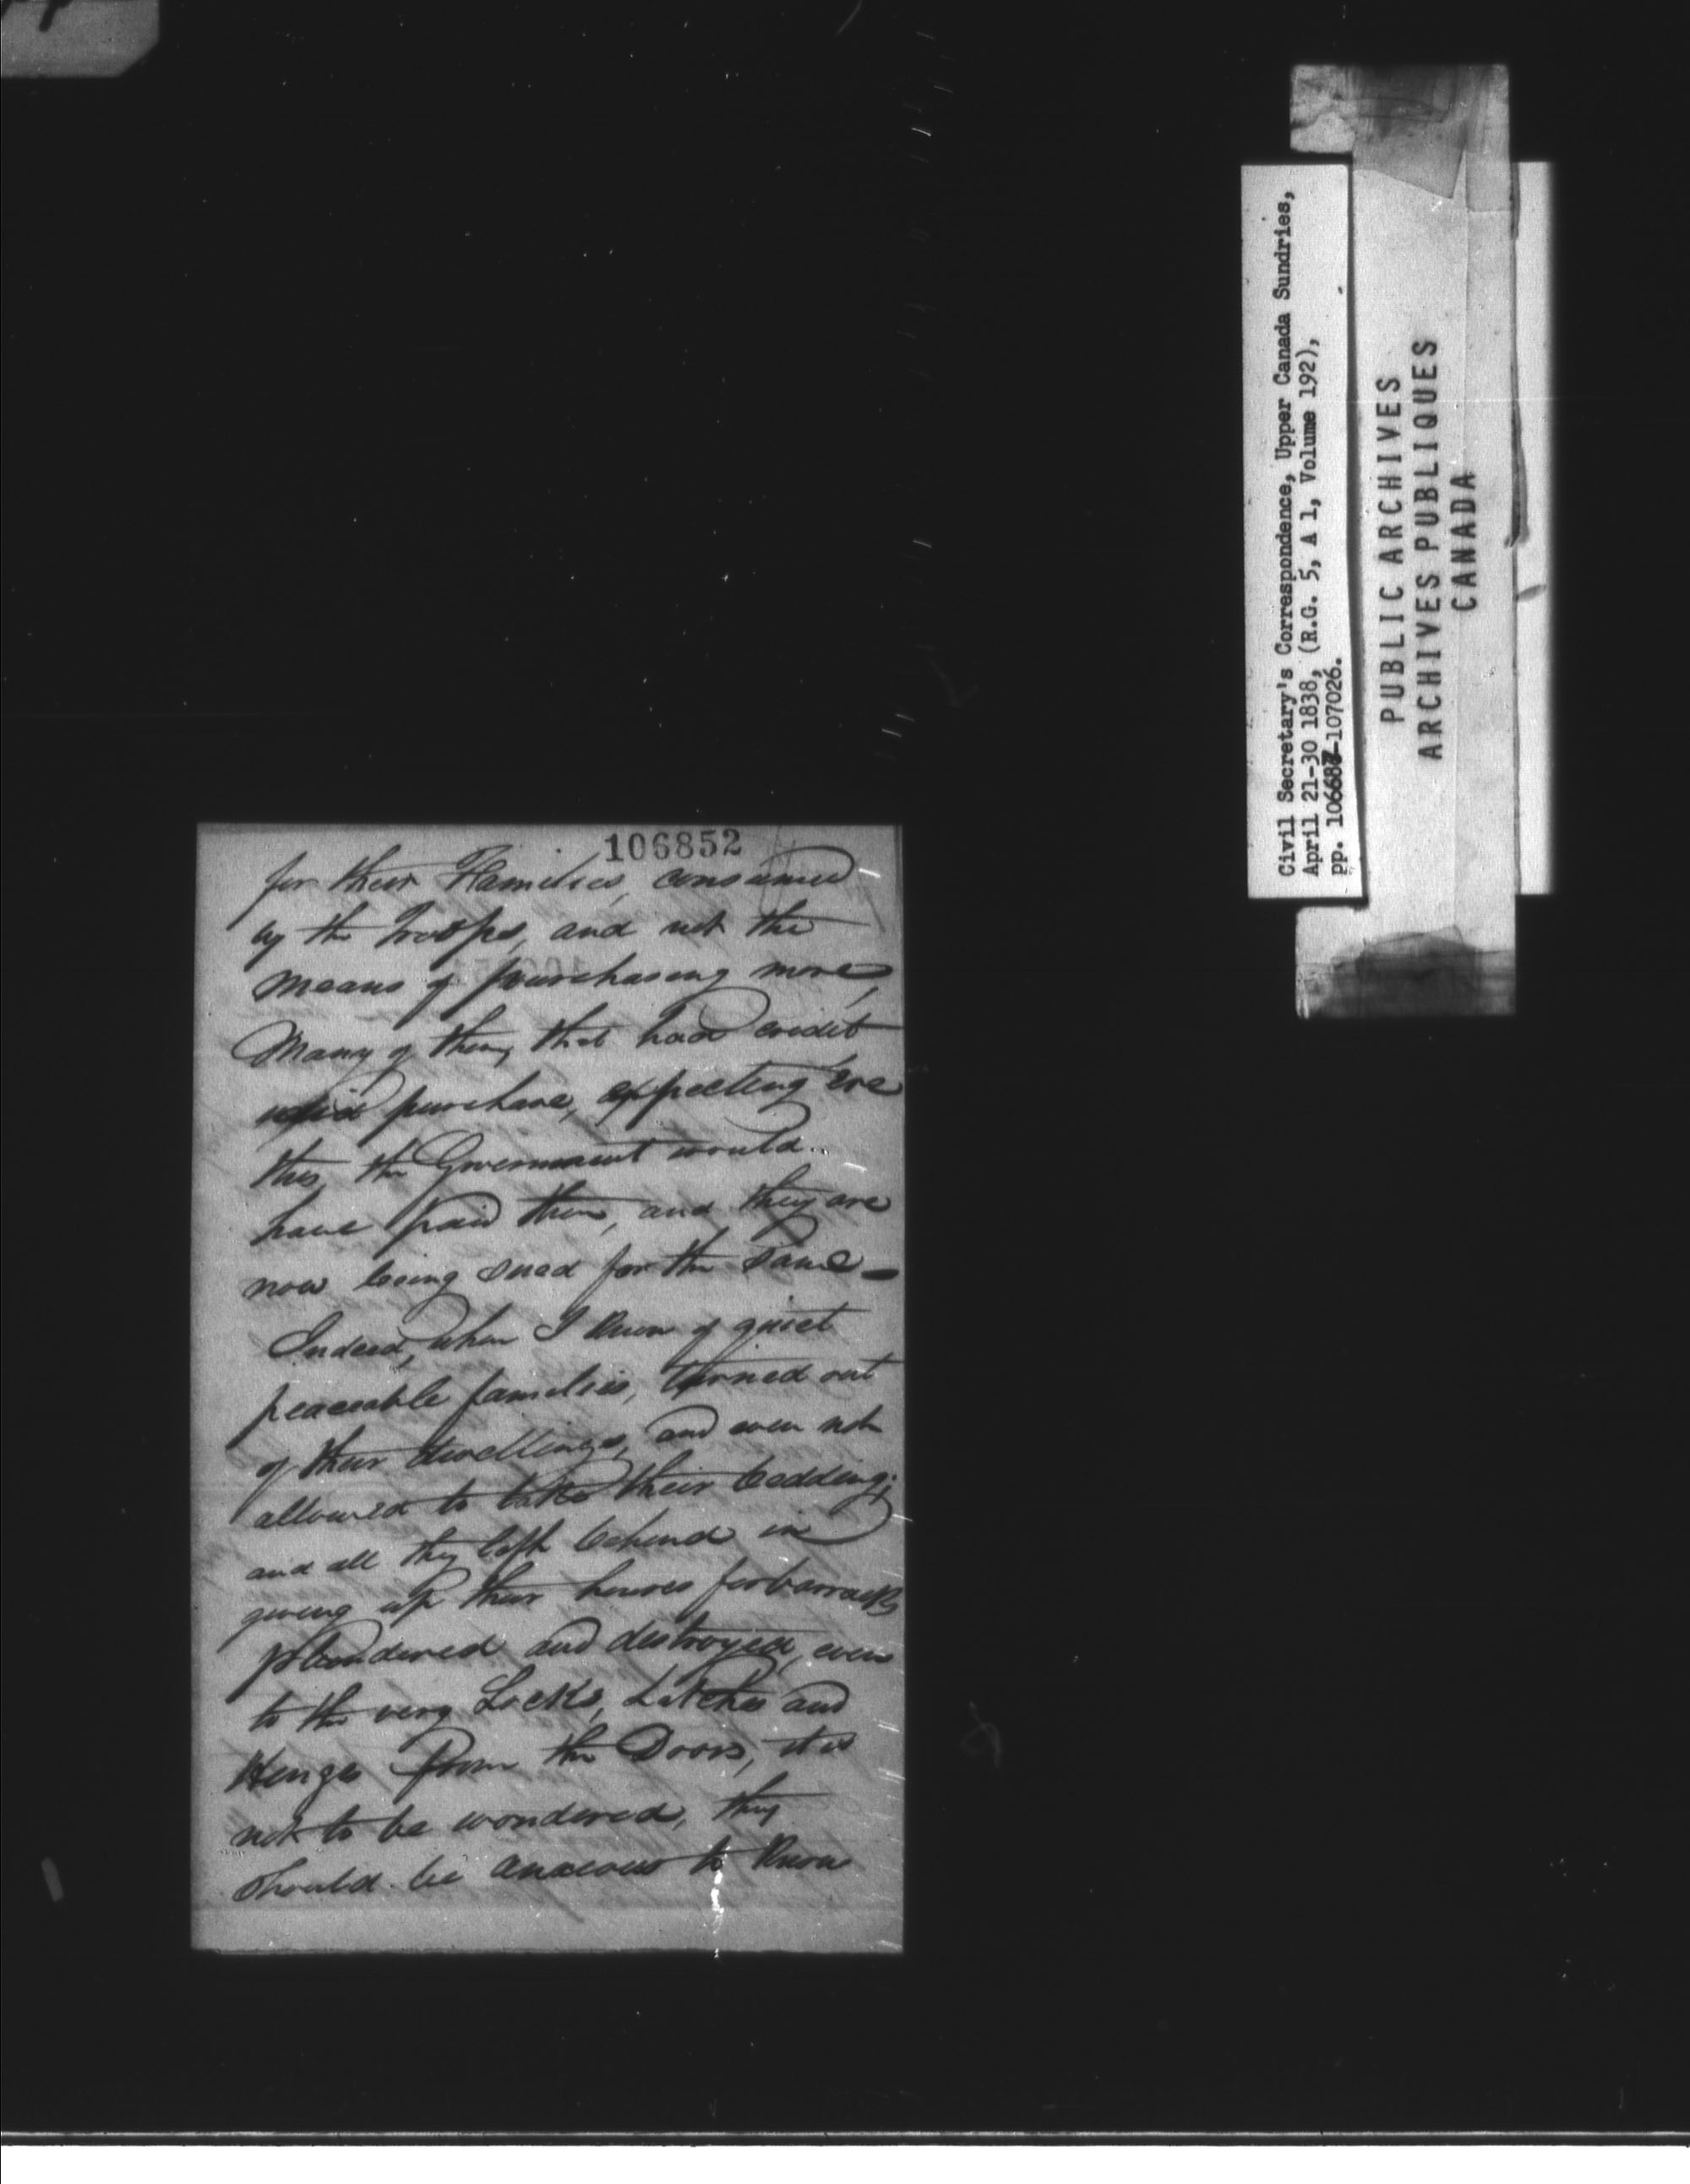 106852
for their Families, consumed
by the Troops, and not the
means of purchasing more,
Many of them, that had credit
did purchase, expecting 'ere
this, the Government would
have paid them, and they are
now being sued for the same —
Indeed, when I know of quiet
peaceable families, turned out
of their dwellings, and even not
allowed to take their bedding;
and all they left behind in
giving up their houses for barracks
plundered and destroyed, even
to the very Locks, Latches and
Henges from the Doors, it is
not to be wondered, they
should be anxious to know
Civil Secretary's Correspondence, Upper Canada Sundries,
April 21-30 1838, (R.G. 5, A 1, Volume 192),
pp. 106687-107026.
PUBLIC ARCHIVES
ARCHIVES PUBLIQUES
CANADA